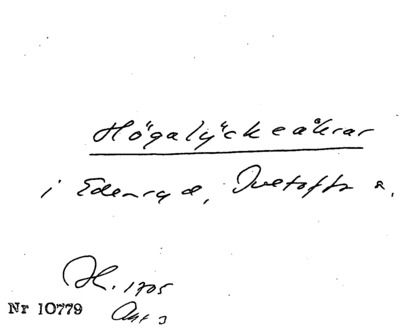 Högalyckeåkrar
i Edenryd, Ivetofta s.
Lh. 1705
Nr 10779
Akt 3